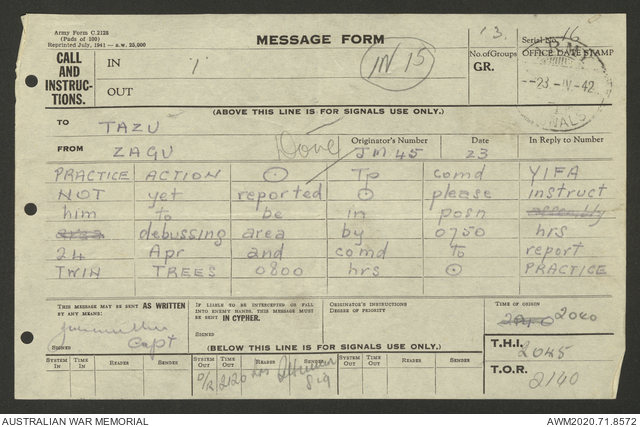 Army Form C.2128
(Pads of 100)
Reprinted July, 1941—s.w. 25,000
MESSAGE FORM
13.
Serial No. 16
CALL AND INSTRUCTIONS.
IN 1
IN 15
No. of Groups
GR.
OFFICE DATE STAMP
ARMY
-23-IV-42
SIGNALS
OUT
(ABOVE THIS LINE IS FOR SIGNALS USE ONLY.)
TO TAZU
FROM ZAGU
Done
Originator's Number JM45
Date 23
In Reply to Number
PRACTICE ACTION ⊙ Tp comd YIFA
NOT yet reported ⊙ please instruct
him to be in posn assembly
area debussing area by 0750 hrs
24 Apr and comd to report
TWIN TREES 0800 hrs ⊙ PRACTICE
THIS MESSAGE MAY BE SENT AS WRITTEN BY ANY MEANS.
SIGNED Capt
IF LIABLE TO BE INTERCEPTED OR FALL INTO ENEMY HANDS, THIS MESSAGE MUST BE SENT IN CYPHER.
SIGNED
ORIGINATOR'S INSTRUCTIONS
DEGREE OF PRIORITY
TIME OF ORIGIN
2040
(BELOW THIS LINE IS FOR SIGNALS USE ONLY.)
T.H.I. 2045
SYSTEM IN TIME IN READER SENDER SYSTEM OUT TIME OUT READER SENDER SYSTEM OUT TIME OUT READER SENDER
2120 hrs Sig
T.O.R. 2140
AUSTRALIAN WAR MEMORIAL
AWM2020.71.8572